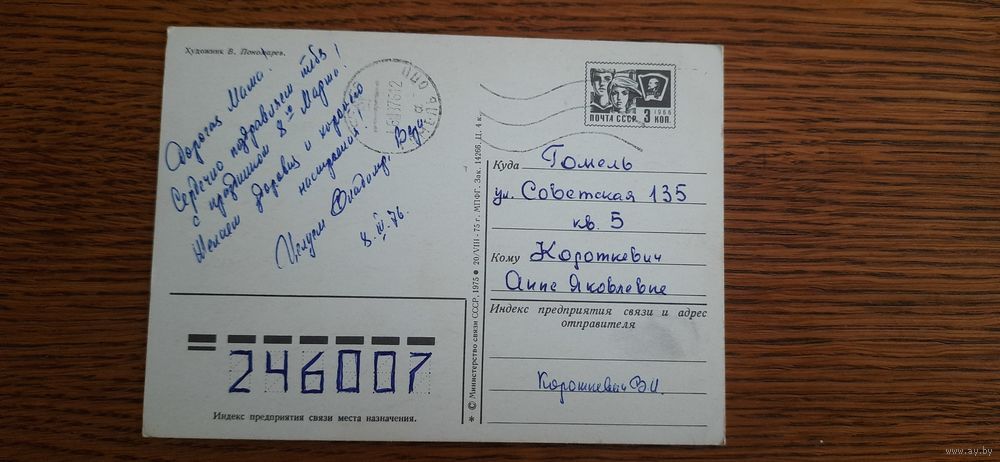 Художник В. Пономарев.
Дорогая Мама!
Сердечно поздравляем тебя
с праздником 8ое Марта!
Желаем здоровья и хорошего
настроения!
Целуем Владимир, Вера.
8.III.76.
ПОЧТА СССР 3 КОП.
1966
Куда Гомель
ул. Советская 135
кв. 5
Кому Короткевич
Анне Яковлевне
Индекс предприятия связи и адрес
отправителя
Короткевич В.И.
246007
Индекс предприятия связи места назначения.
* © Министерство связи СССР, 1975 ● 20/VIII - 75 г. МПФГ. Зак. 14266. Ц. 4 к.
www.ay.by